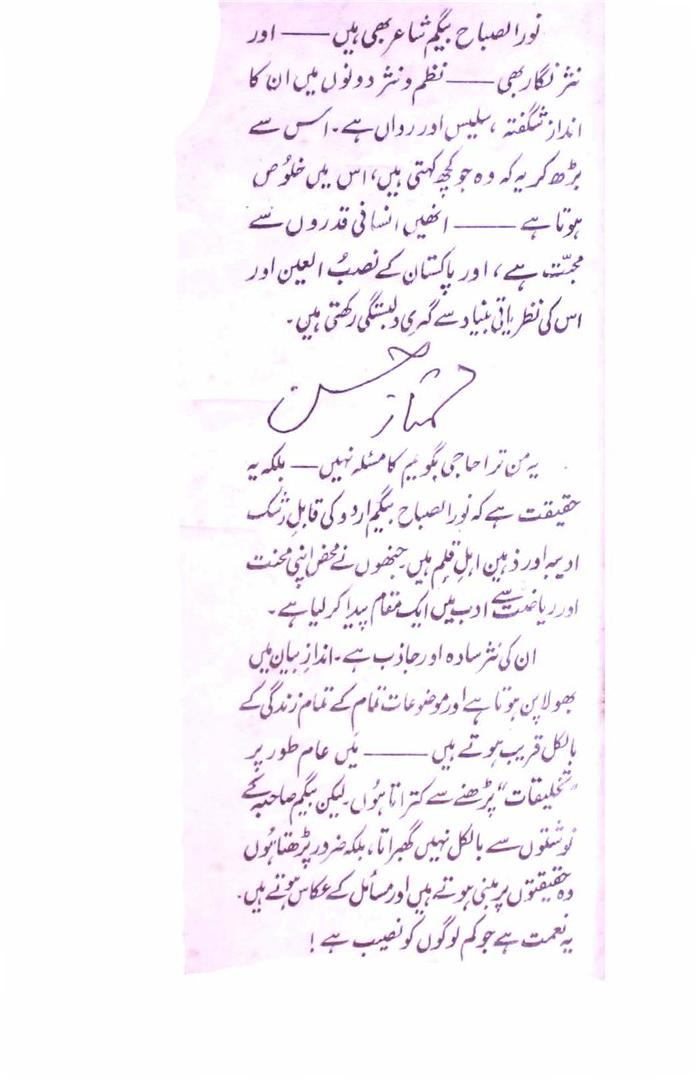 نورالصباح بیگم شاعر بھی ہیں —— اور
نثر نگار بھی —— نظم و نثر دونوں میں ان کا
انداز شگفتہ، سلیس اور رواں ہے۔ اس سے
بڑھ کر یہ کہ وہ جو کچھ کہتی ہیں، اس میں خلوُص
ہوتا ہے —— انھیں انسانی قدروں سے
محبّت ہے، اور پاکستان کے نصبُ العین اور
اس کی نظریاتی بنیاد سے گہری دلبستگی رکھتی ہیں۔
ممتاز حسن
یہ من ترا حاجی بگویم کا مسئلہ نہیں —— بلکہ یہ
حقیقت ہے کہ نورالصباح بیگم اردو کی قابلِ رشک
ادیبہ اور ذہین اہلِ قلم ہیں جنھوں نے محض اپنی محنت
اور ریاضت سے ادب میں ایک مقام پیدا کر لیا ہے۔
ان کی نثر سادہ اور جاذب ہے۔ اندازِ بیان میں
بھولا پن ہوتا ہے اور موضوعات تمام کے تمام زندگی کے
بالکل قریب ہوتے ہیں —— میں عام طور پر
"تخلیقات" پڑھنے سے کتراتا ہُوں لیکن بیگم صاحبہ کے
نوشتوں سے بالکل نہیں گھبراتا، بلکہ ضرور پڑھتا ہُوں
وہ حقیقتوں پر مبنی ہوتے ہیں اور مسائل کے عکاس ہوتے ہیں۔
یہ نعمت ہے جو کم لوگوں کو نصیب ہے !